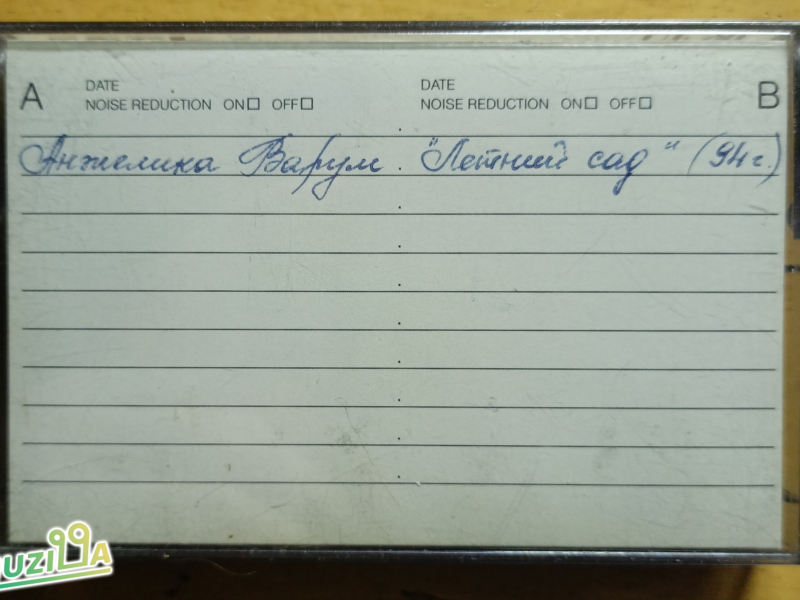 A DATE DATE B
NOISE REDUCTION ON OFF NOISE REDUCTION ON OFF
Анжелика Варум "Летний сад" (94г.)